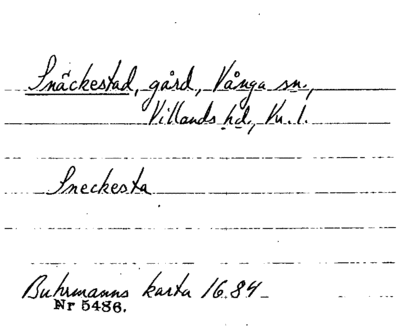 Snäckestad, gård, Vånga sn.,
Villands hd., Kr. l.
Sneckesta
Buhrmanns karta 1684
Nr 5486.